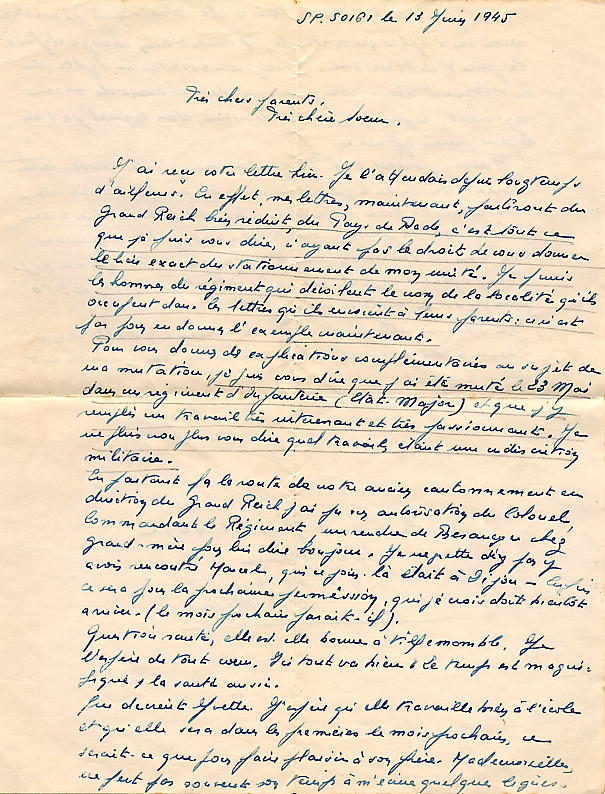 SP. 50161 le 13 Juin 1945
Très chers parents,
Très chère soeur,
J'ai reçu votre lettre hier. Je l'attendais depuis longtemps
d'ailleurs. En effet, mes lettres, maintenant, partiront du
Grand Reich bien réduit, du Pays de Bade, c'est tout ce
que je puis vous dire, n'ayant pas le droit de vous donner
le lieu exact du stationnement de mon unité. Je punis
les hommes du régiment qui dévoilent le nom de la localité qu'ils
occupent dans les lettres qu'ils envoient à leurs parents : ce n'est
pas pour en donner l'exemple maintenant.
Pour vous donner des explications complémentaires au sujet de
ma mutation, je puis vous dire que j'ai été muté le 23 Mai
dans un régiment d'Infanterie (Etat-Major) et que j'y
remplis un travail très intéressant et très passionnant. Je
ne puis non plus vous dire quel travail, étant une indiscrétion
militaire.
En partant par la route de notre ancien cantonnement en
direction du Grand Reich j'ai pu, en autorisation du Colonel,
Commandant le Régiment me rendre de Besançon chez
grand-mère pour lui dire bonjour. Je regrette d'y
avoir rencontré Marcel, qui ce jour-là était à Dijon - Enfin
ce sera pour la prochaine permission, qui je crois doit bientôt
arriver. (le mois prochain parait-il).
Question santé, elle est-elle bonne à Villemomble. Je
l'espère de tout coeur. Ici tout va bien : le temps est magni-
fique, la santé aussi.
Que devient Yvette. J'espère qu'elle travaille bien à l'école
et qu'elle sera dans les premières le mois prochain, ce
serait-ce que pour faire plaisir à son frère. Mademoiselle,
ne perd pas souvent son temps à m'écrire quelques lignes.